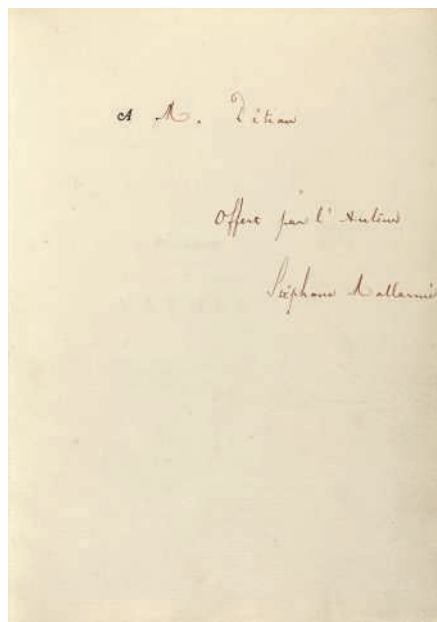 A M.
Offert par l'Auteur
Stéphane Mallarmé